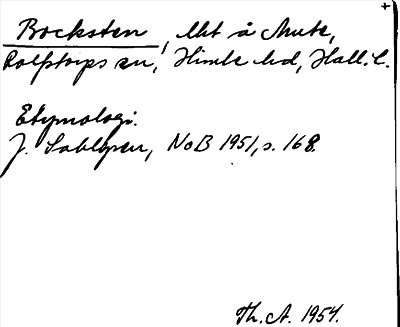 Bocksten, Mt å Anute,
Rolfstorps sn, Himle hd, Hall. l.
Etymologi.
J. Sahlgren, NoB 1951, s. 168.
Th. A. 1954.